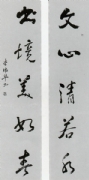 文心清若水
境美如春